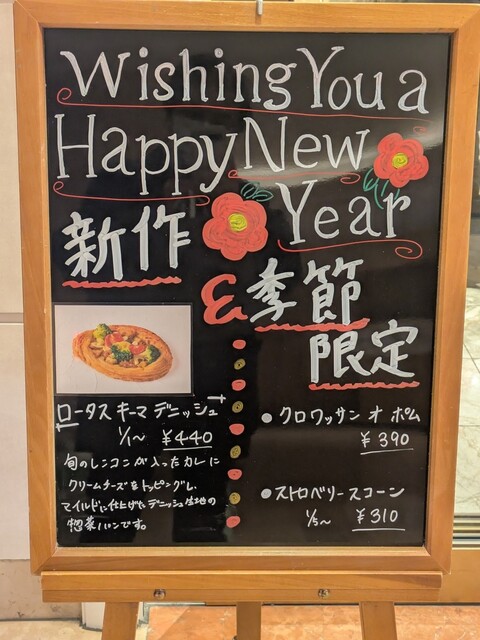 Wishing You a
Happy New
Year
新作
&季節
限定
ロータスキーマデニッシュ
1/1〜 ¥440
旬のレンコンが入ったカレーに
クリームチーズをトッピングし、
マイルドに仕上げたデニッシュ生地の
惣菜パンです。
● クロワッサン オ ポム
¥390
● ストロベリースコーン
1/5〜 ¥310